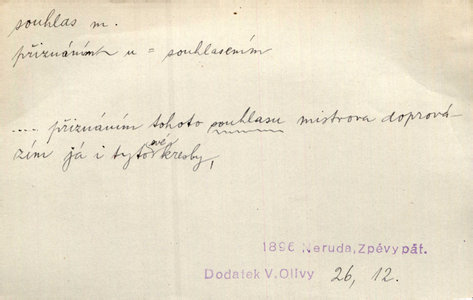 souhlas m.
přiznáním u = souhlasením
.... přiznáním tohoto souhlasu mistrova doprová-
zím já i tyto své kresby,
1896 Neruda, Zpěvy pát.
Dodatek V. Olivy 26, 12.